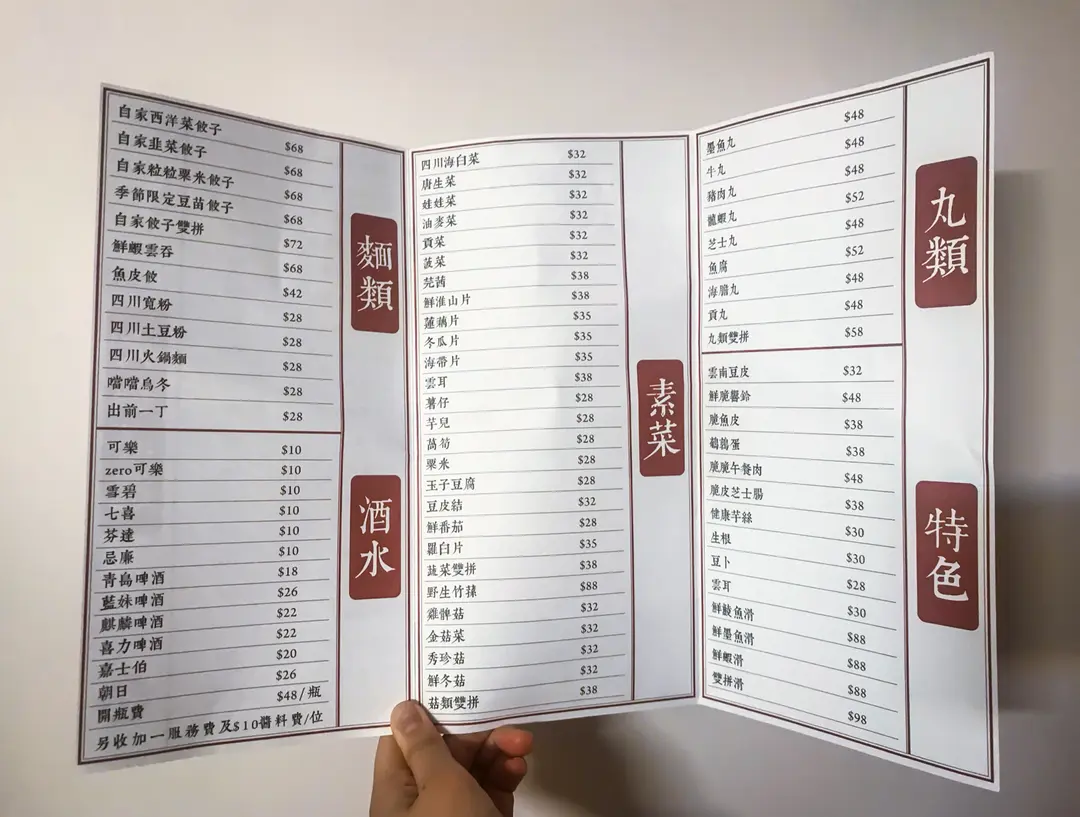 麵類
自家西洋菜餃子 $68
自家韭菜餃子 $68
自家粒粒粟米餃子 $68
季節限定豆苗餃子 $68
自家餃子雙拼 $72
鮮蝦雲吞 $68
魚皮餃 $42
四川寬粉 $28
四川土豆粉 $28
四川火鍋麵 $28
噹噹烏冬 $28
出前一丁 $28
酒水
可樂 $10
zero可樂 $10
雪碧 $10
七喜 $10
芬達 $10
忌廉 $10
青島啤酒 $18
藍妹啤酒 $26
麒麟啤酒 $22
喜力啤酒 $22
嘉士伯 $20
朝日 $26
開瓶費 $48/瓶
另收加一服務費及$10醬料費/位
素菜
四川海白菜 $32
唐生菜 $32
娃娃菜 $32
油麥菜 $32
貢菜 $32
菠菜 $32
芫茜 $38
鮮淮山片 $38
蓮藕片 $35
冬瓜片 $35
海帶片 $35
雲耳 $38
薯仔 $28
芋兒 $28
萵筍 $28
粟米 $28
玉子豆腐 $28
豆皮結 $32
鮮番茄 $28
蘿白片 $35
蔬菜雙拼 $38
野生竹蓀 $88
雞髀菇 $32
金菇菜 $32
秀珍菇 $32
鮮冬菇 $32
菇類雙拼 $38
丸類
墨魚丸 $48
牛丸 $48
豬肉丸 $48
龍蝦丸 $52
芝士丸 $48
魚腐 $52
海膽丸 $48
貢丸 $48
丸類雙拼 $58
特色
雲南豆皮 $32
鮮脆響鈴 $48
脆魚皮 $38
鵪鶉蛋 $38
脆脆午餐肉 $48
脆皮芝士腸 $38
健康芋絲 $30
生根 $30
豆卜 $28
雲耳 $30
鮮鯪魚滑 $88
鮮墨魚滑 $88
鮮蝦滑 $88
雙拼滑 $98